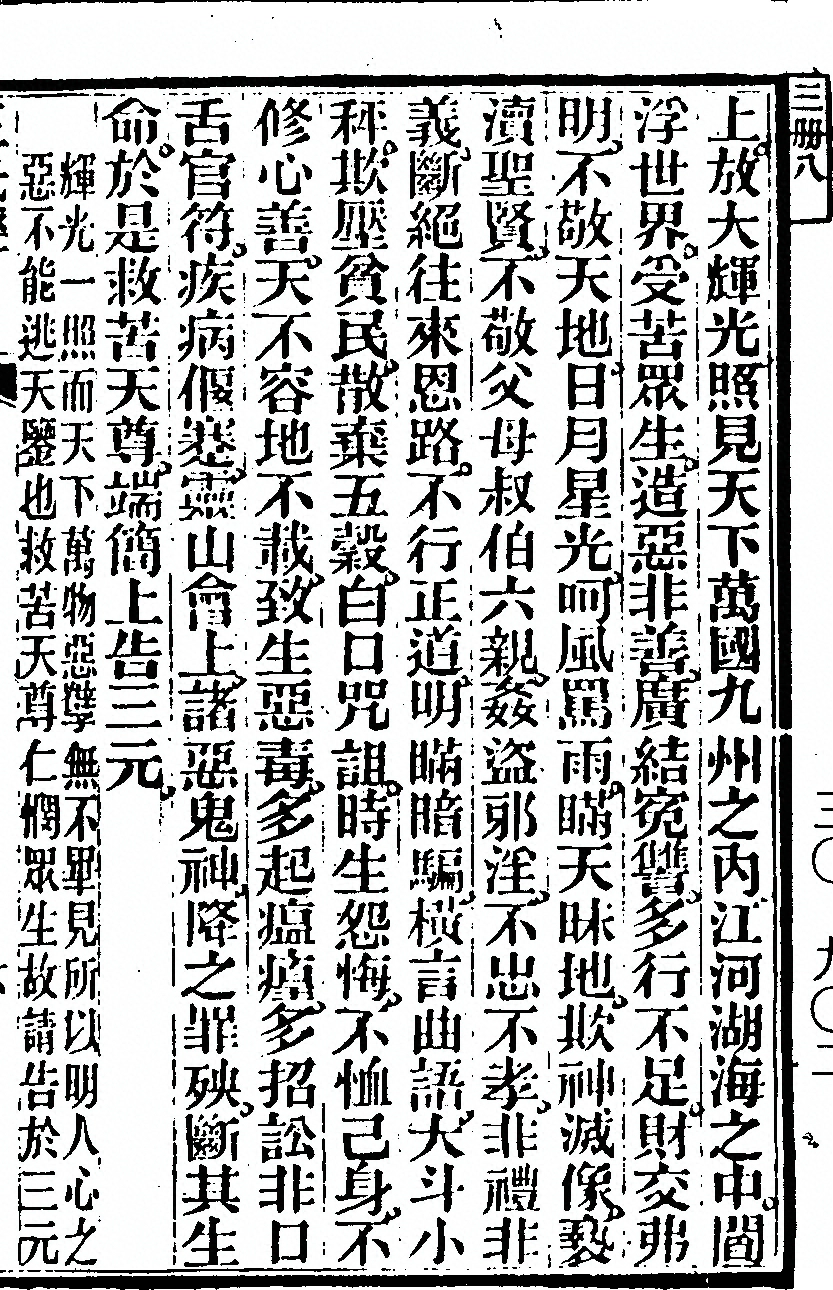 三册八
上放大輝光照見天下萬國九州之內江河湖海之中閻
浮世界受苦眾生造惡非善廣結寃讐多行不足財交弗
明不敬天地日月星光呵風罵雨瞞天昧地欺神滅像褻
瀆聖賢不敬父母叔伯六親姦盜邪淫不忠不孝非禮非
義斷絕往來恩路不行正道明瞞暗騙橫言曲語大斗小
秤欺壓貧民散棄五穀白口咒詛時生怨悔不恤己身不
修心善天不容地不載致生惡毒多起瘟𤺋多招訟非口
舌官符疾病偃蹇靈山會上諸惡鬼神降之罪殃斷其生
命於是救苦天尊端簡上告三元
輝光一照而天下萬物惡孽無不畢見所以明人心之
惡不能逃天鑒也救苦天尊仁憫眾生故請告於三元
三〇九〇二